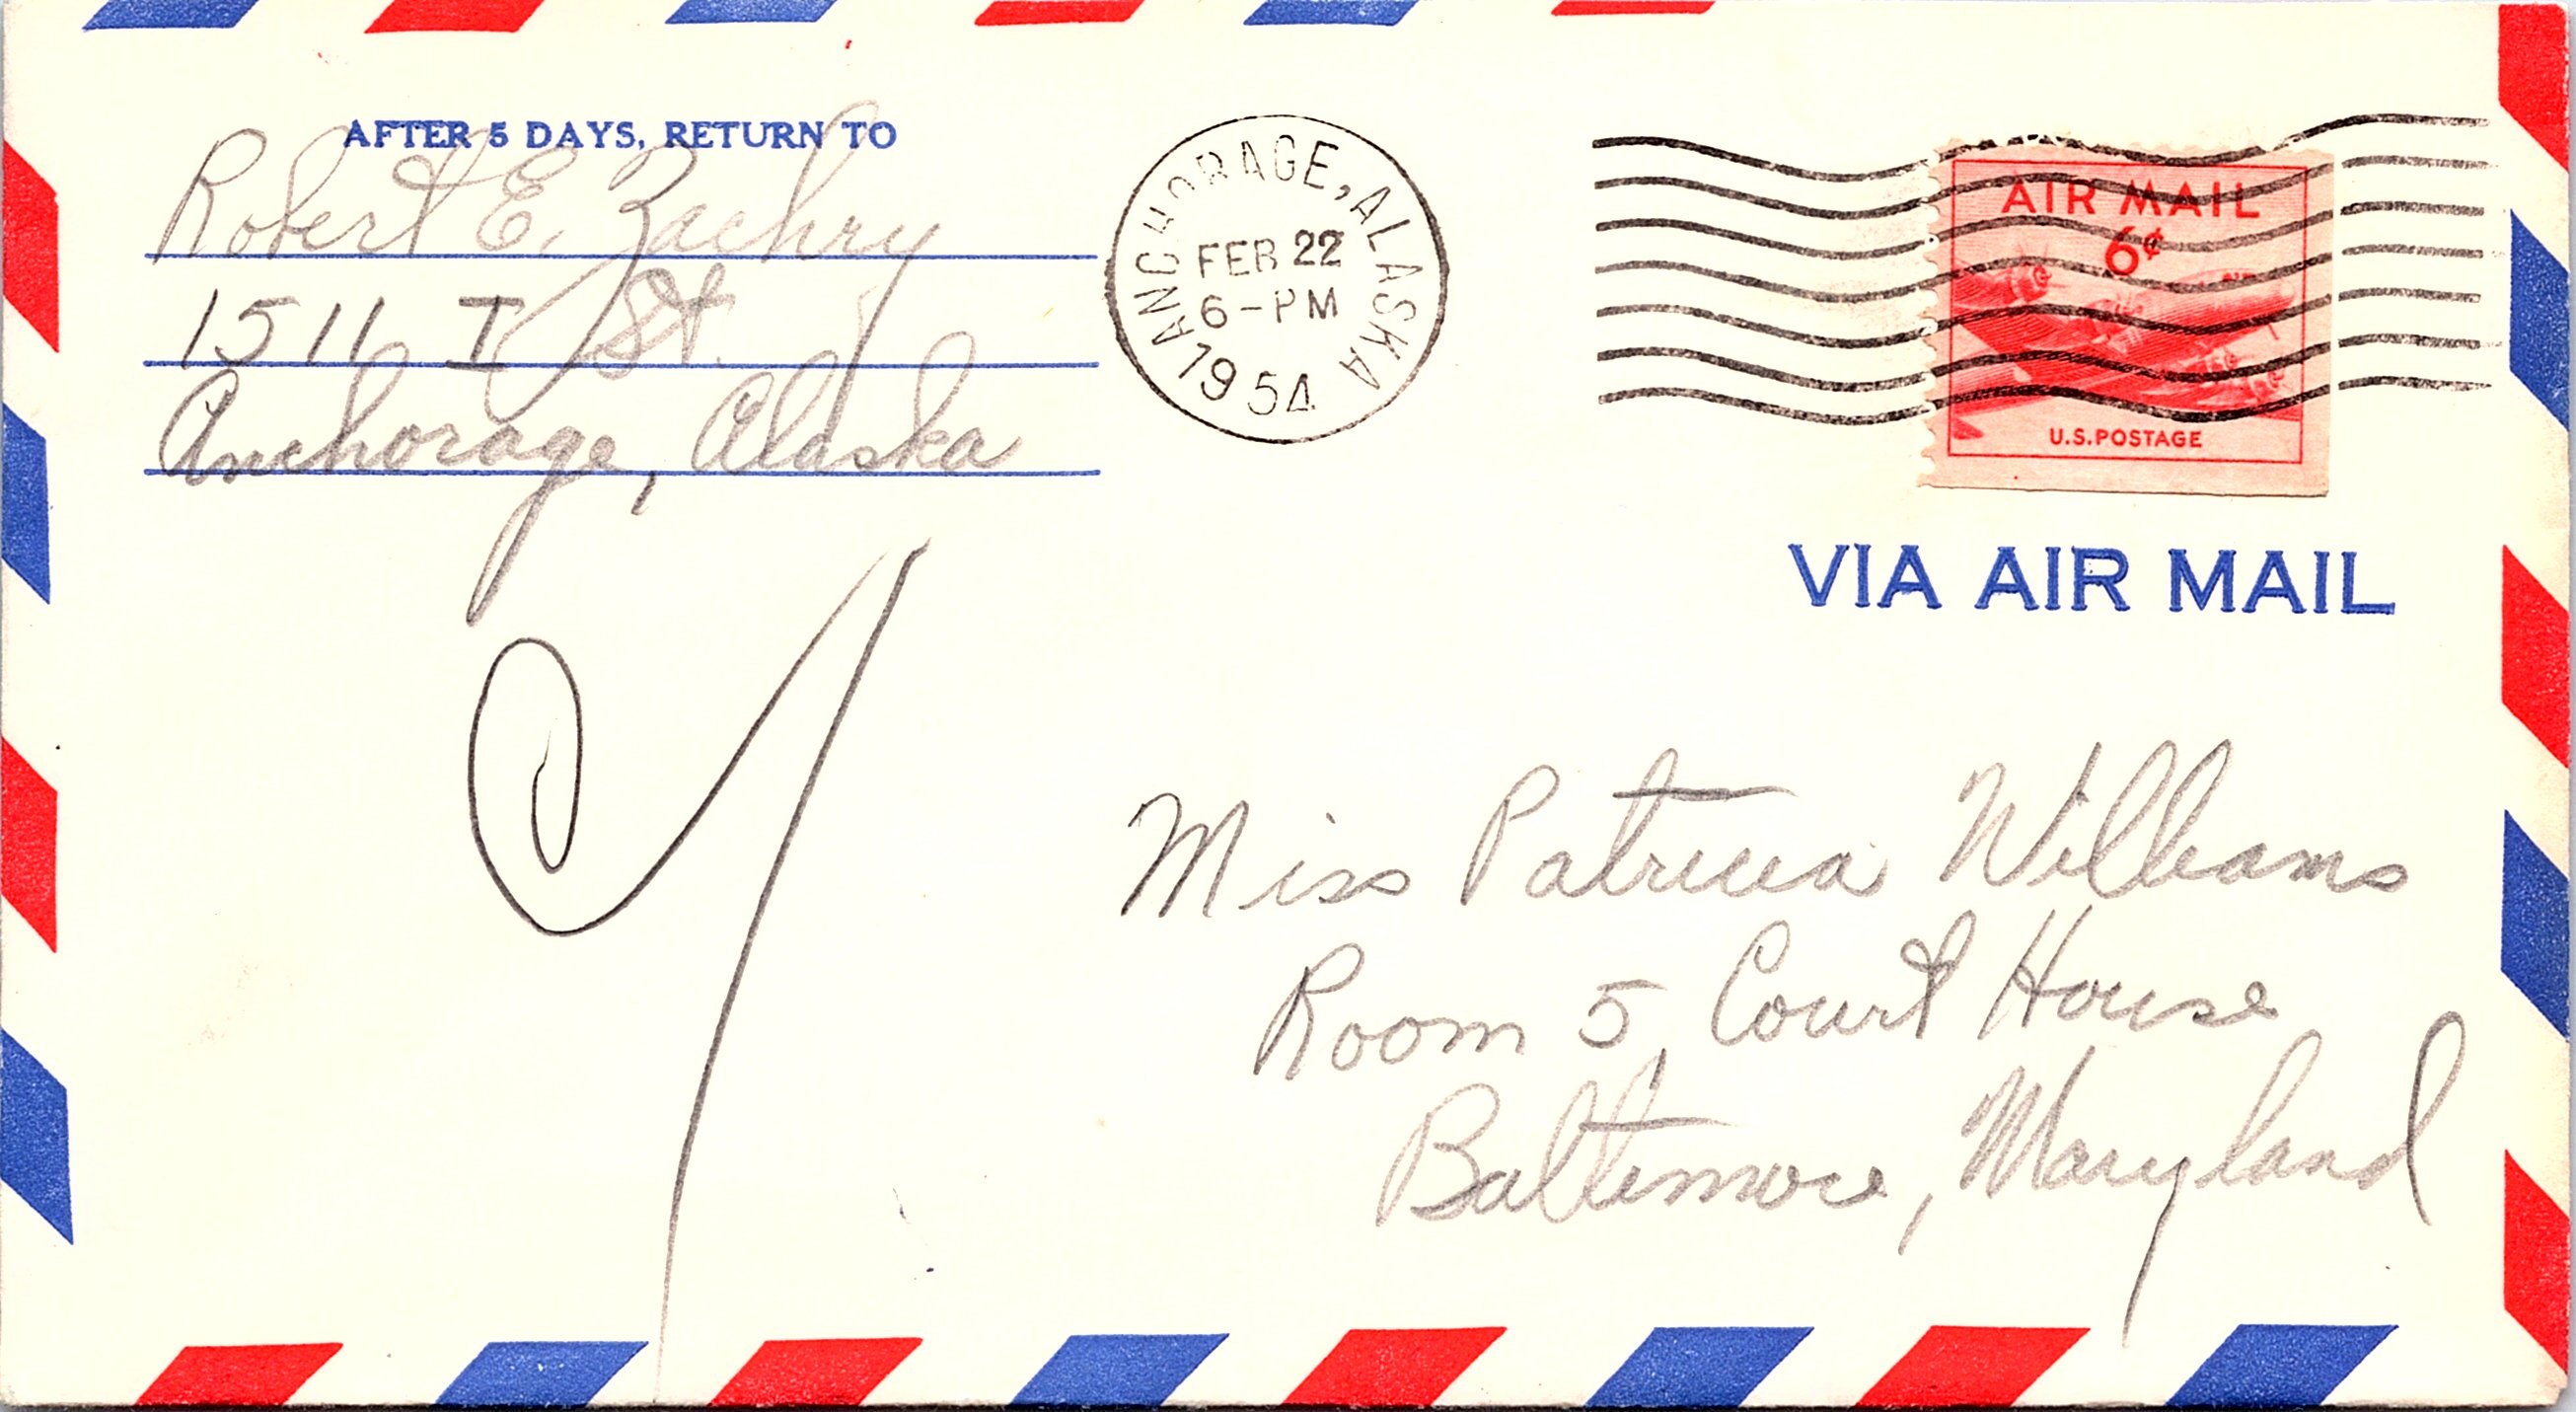 AFTER 5 DAYS, RETURN TO
Robert E. Zachry
1511 I St.
Anchorage, Alaska
ANCHORAGE, ALASKA
FEB 22
6-PM
1954
AIR MAIL
6¢
U.S. POSTAGE
VIA AIR MAIL
Miss Patricia Williams
Room 5, Court House
Baltimore, Maryland